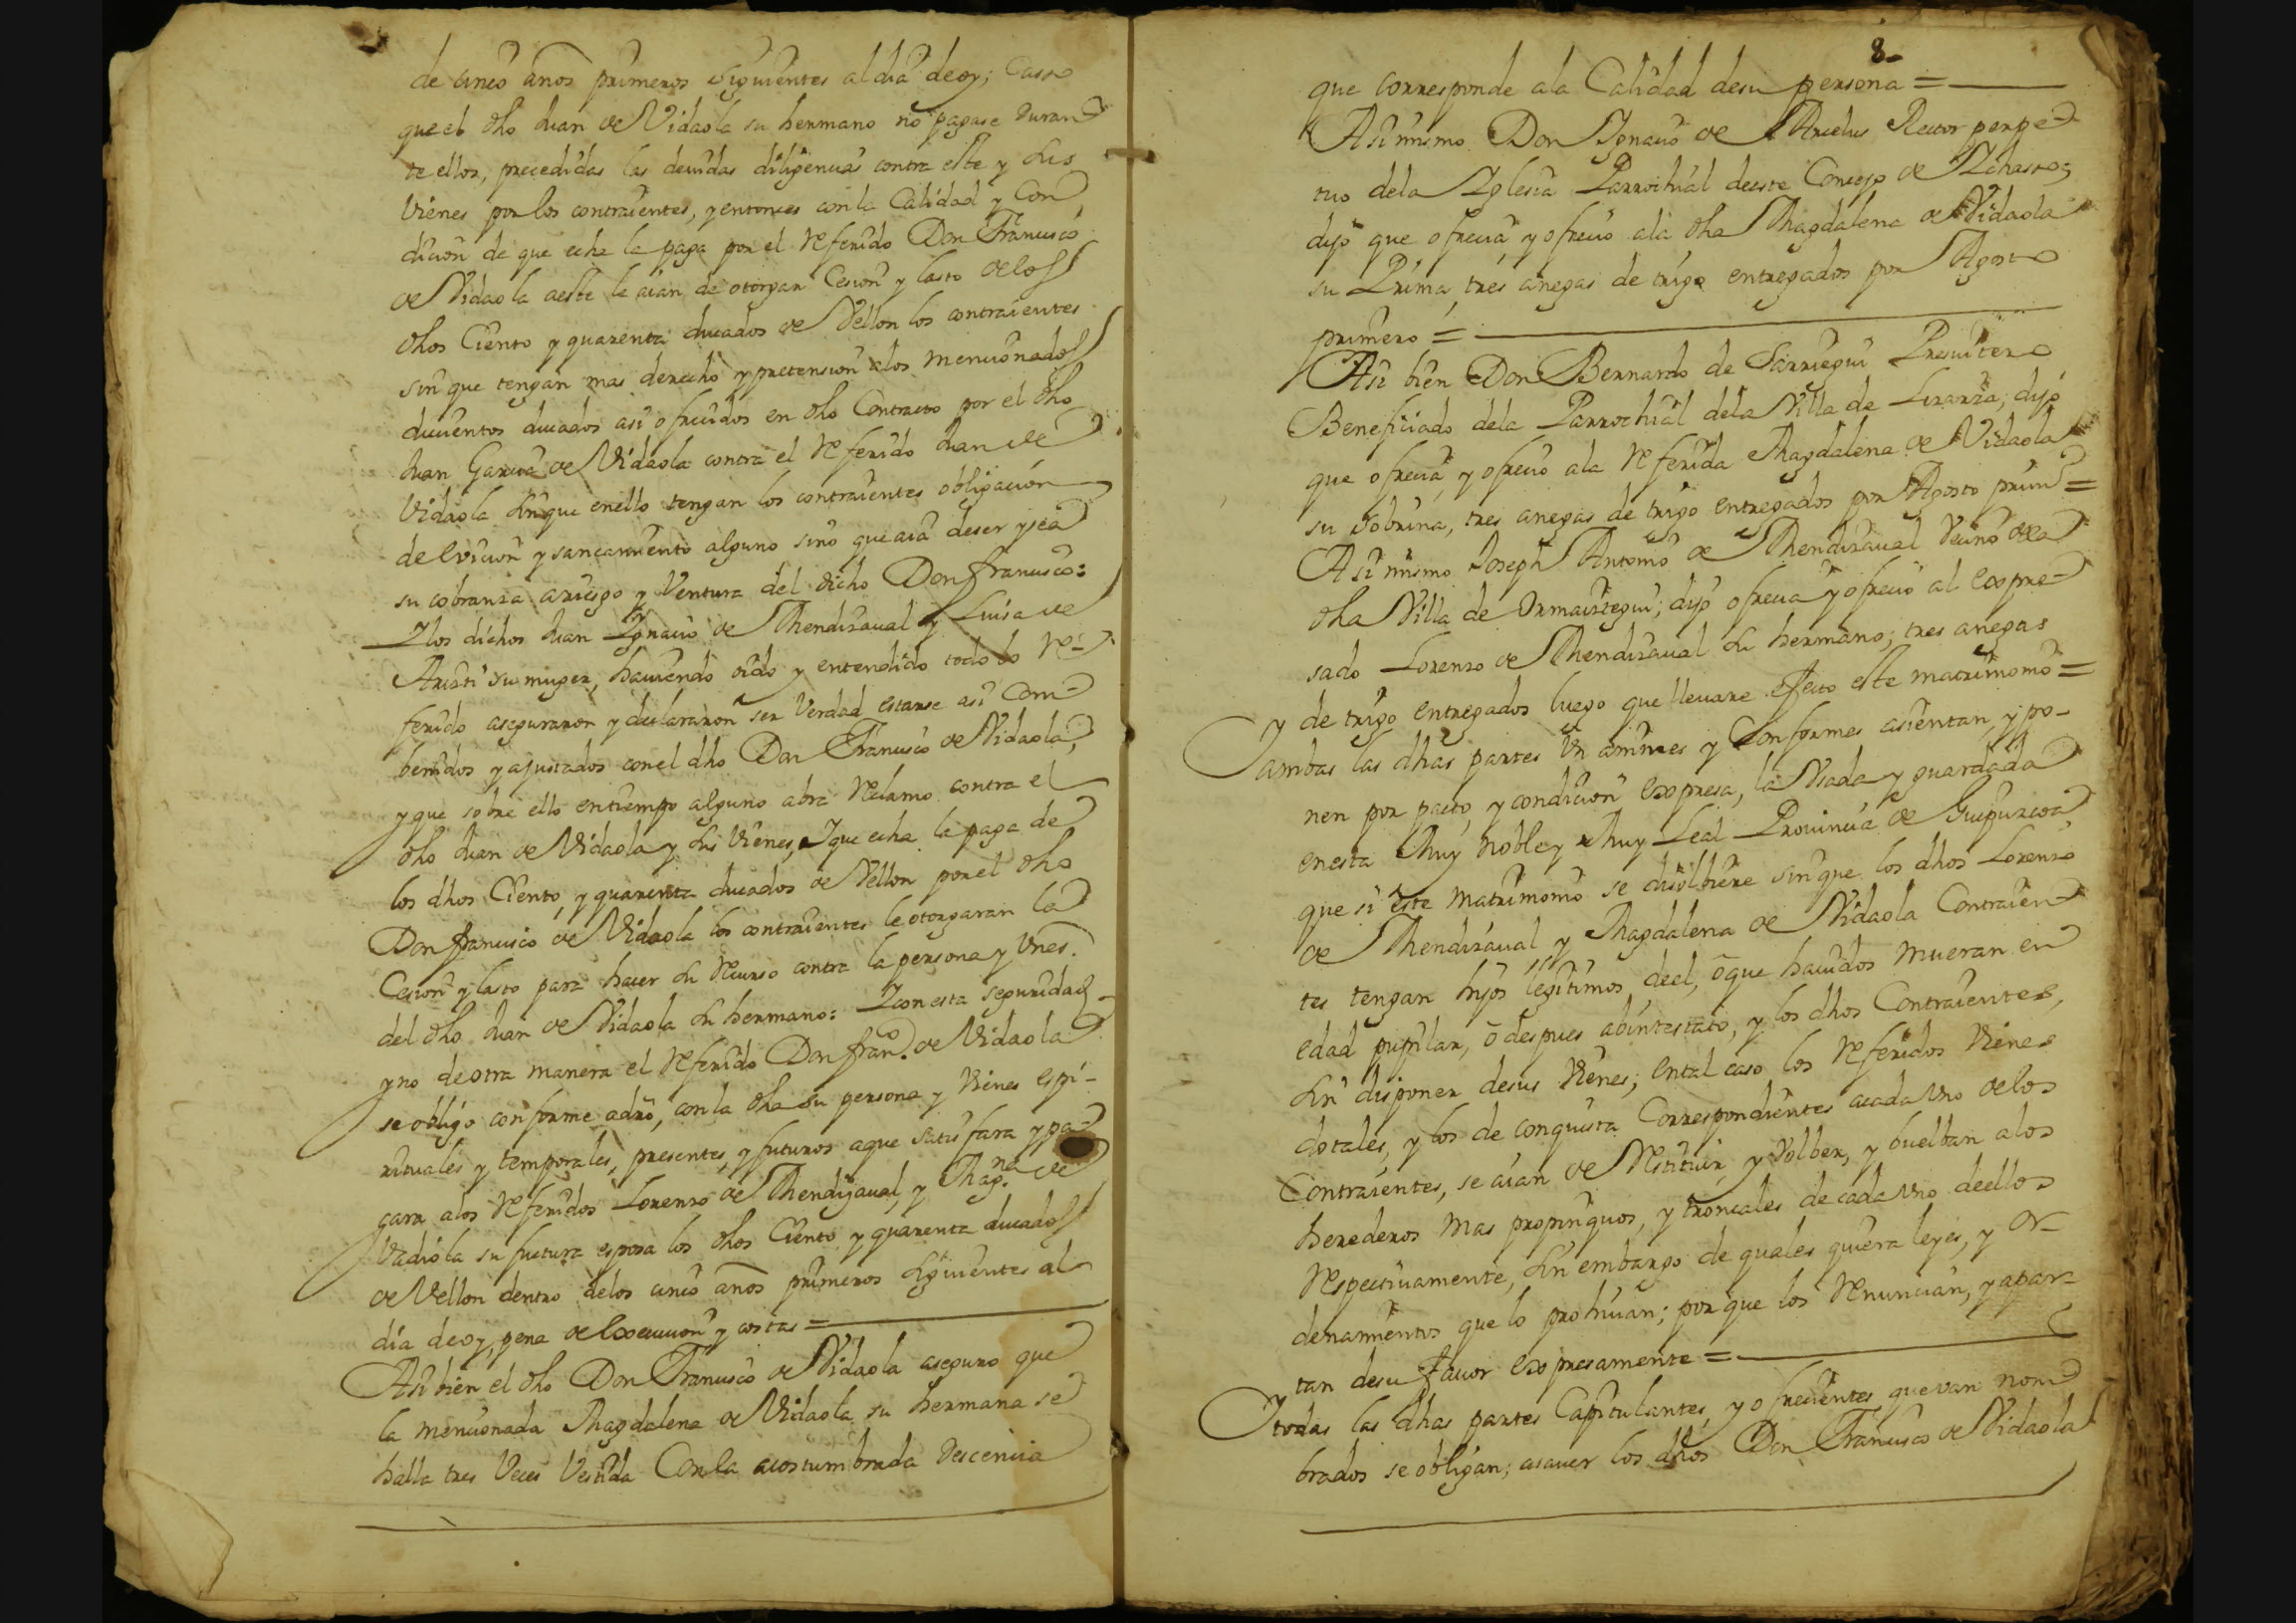 de cinco años primeros siguientes al dia deoy; Casso
que el dho Juan de Vidaola su hermano no pagase duran
te ellos, precedidas las deuidas diligencias contra este y sus
Vienes por los contraientes, y entonces con la Calidad y Con
dicion de que echa la paga por el referido Don Francisco
de Vidaola aeste le aian de otorgar Cesion y lasto delos
dhos Ciento y quarenta ducados de Vellon los contraientes
sin que tengan mas derecho y pretension alos mencionados
ducientos ducados asi ofrecidos en dho Contracto por el dho
Juan Garcia de Vidaola contra el referido Juan de
Vidaola sin que enello tengan los contraientes obligacion
de eviccion y sancamiento alguno sino que aia deser y sea
su cobranza ariesgo y Ventura del dicho Don francisco:
Y los dichos Juan Ignacio de Mendizaual y Luisa de
Aristi su muger, hauiendo oido y entendido todo lo re-
ferido aseguraron y declararon ser Verdad estarse asi Com-
benidos y ajustados con el dho Don Francisco de Vidaola,
y que sobre ello entiempo alguno abra reclamo contra el
dho Juan de Vidaola y sus Vienes, Y que echa la paga de
los dhos Ciento, y quarenta ducados de Vellon por el dho
Don francisco de Vidaola los contraientes le otorgaran la
Cesion y lasto para hacer su recurso contra la persona y Vnes.
del dho Juan de Vidaola su hermano: Y con esta seguridad
y no de otra manera el referido Don franco. de Vidaola
se obligó conforme adro, con la dha su persona y Vienes espi-
rituales y temporales, presentes, y futuros aque satisfara y pa-
gara alos referidos Lorenzo de Mendizaual, y Magna. de
Vadiola su futura esposa los dhos Ciento y quarenta ducados
de Vellon dentro delos cinco años primeros siguientes al
dia deoy, pena de execucion y costas =
Asi bien el dho Don Francisco de Vidaola aseguro que
la mencionada Magdalena de Vidaola su hermana se
halla tres Veces Vestida Con la acostumbrada descencia
8
que corresponde ala Calidad desu persona =
Asi mismo Don Ignacio de Arcelus Rector perpe-
tuo dela Iglesia Parrochial deeste Concejo de Ychaso;
dijo que ofrecia, y ofrecio ala dha Magdalena de Vidaola
su Prima, tres anegas de trigo entregados por Agosto
primero =
Asi bien Don Bernardo de Sarriegui Presuitero
Beneficiado dela Parrochial dela Villa de Lizarza; dijo
que ofrecia, y ofrecio ala referida Magdalena de Vidaola
su sobrina, tres anegas de trigo entregados por Agosto prim =
Asi mismo Joseph Antonio de Mendizaual Vecino dela
dha Villa de Ormaiztegui; dijo ofrecia y ofrecio al expre-
sado Lorenzo de Mendizaual su hermano; tres anegas
de trigo entregados luego que lleuare efecto este matrimonio =
Y ambas las dhas partes Vn animes y Conformes asientan, y po-
nen por pacto, y condicion expresa, la Vsada y guardada
enesta Muy Noble y Muy Leal Prouincia de Guipuzcoa
que si este matrimonio se disolbiere sin que los dhos Lorenzo
de Mendizaual, y Magdalena de Vidaola Contraien-
tes tengan hijos legitimos, deel, ô que hauidos mueran en
edad pupilar, ô despues abintestato, y los dhos Contraientes,
sin disponer desus Vienes; ental caso los referidos Vienes
dotales, y los de conquista Correspondientes acada vno delos
Contraientes, se aian de restituir, y Volber, y buelban alos
herederos mas propinquos, y troncales de cada vno deellos
respectiuamente, sin embargo de quales quiera leyes, y or-
denamientos que lo prohiuan; por que los renuncian, y apar-
tan desu fauor expresamente =
Y todas las dhas partes Capitulantes, y ofrecientes que van nom
brados se obligan; asauer los dhos Don Francisco de Vidaola